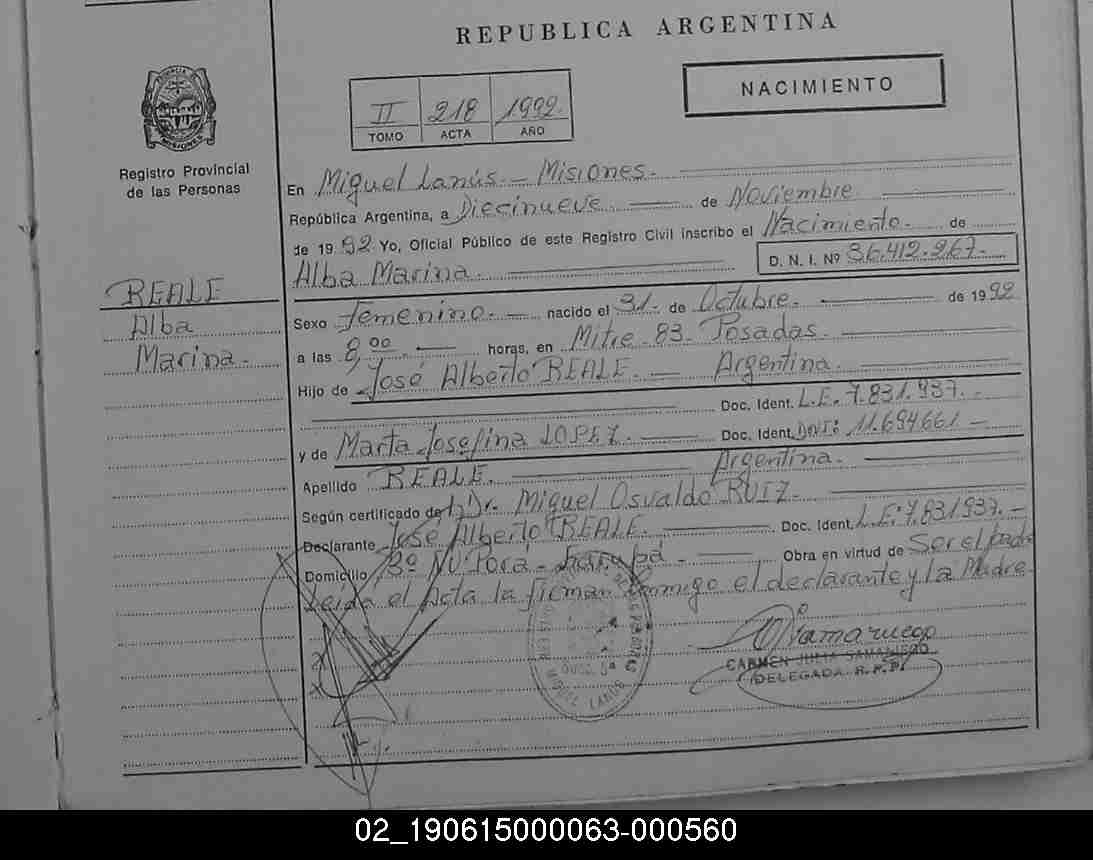 REPUBLICA ARGENTINA
NACIMIENTO
II 218 1992.
TOMO ACTA AÑO
PROVINCIA DE MISIONES
Registro Provincial
de las Personas
En Miguel Lanús. - Misiones.
República Argentina, a Diecinueve de Noviembre
de 1992 Yo, Oficial Público de este Registro Civil inscribo el Nacimiento. de
Alba Marina. D. N. I. Nº 36.412.267.
REALE
Alba
Marina.
Sexo femenino. nacido el 31. de Octubre. de 1992
a las 8,00 horas, en Mitre 83. Posadas.
Hijo de José Alberto REALE. Argentina.
Doc. Ident. L.E. 7.831.937.
y de Marta Josefina LOPEZ. Doc. Ident. DNI: 11.694.661
Apellido REALE. Argentina.
Según certificado del Dr. Miguel Osvaldo RUIZ.
Declarante José Alberto REALE. Doc. Ident. L.E: 7.831.937.
Domicilio Bº Ñu Porá - Garupá - Obra en virtud de Ser el padre
Leída el Acta la firman conmigo el declarante y la Madre
CARMEN JULIA SAMANIEGO
DELEGADA R.P.P.
MIGUEL LANUS
02_190615000063-000560